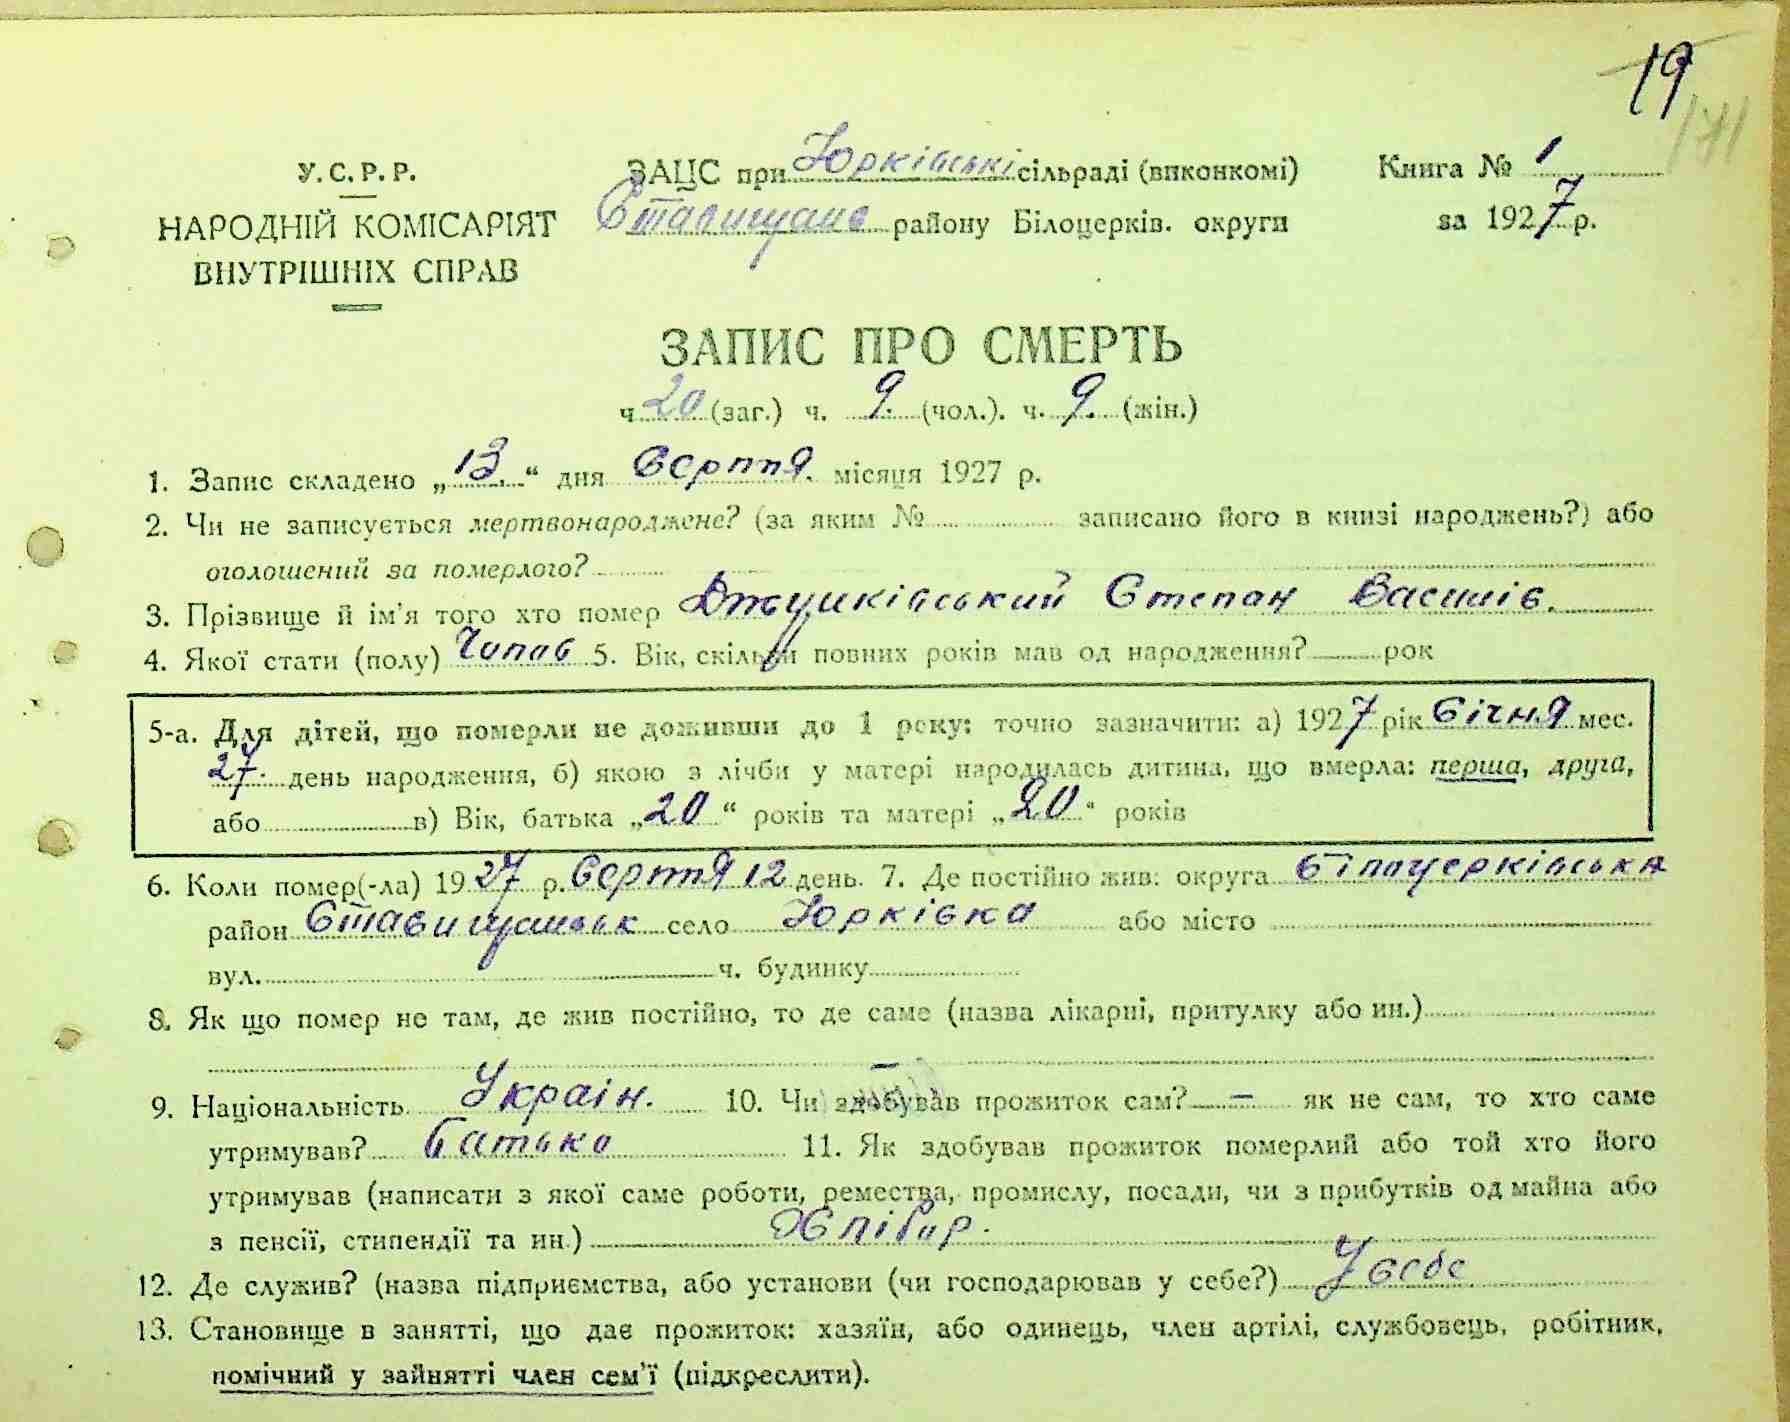 19
171
У.С.Р.Р.
НАРОДНІЙ КОМІСАРІЯТ
ВНУТРІШНІХ СПРАВ
ЗАЦС при Юрківські сільраді (виконкомі)
Ставищанс району Білоцерків. округи
Книга № 1
за 1927 р.
ЗАПИС ПРО СМЕРТЬ
ч 20 (заг.) ч. 9. (чол.). ч. 9. (жін.)
1. Запис складено „13.“ дня Серпня. місяця 1927 р.
2. Чи не записується мертвонароджене? (за яким № записано його в книзі народжень?) або
оголошений за померлого?
3. Прізвище й ім'я того хто помер Степан Василів.
4. Якої стати (полу) Чолов 5. Вік, скільки повних років мав од народження? рок
5-а. Для дітей, що померли не доживши до 1 року: точно зазначити: а) 1927 рік Січня мес.
27. день народження, б) якою з лічби у матері народилась дитина, що вмерла: перша, друга,
або в) Вік, батька „20“ років та матері „20“ років
6. Коли помер(-ла) 1927 р. Серпня 12 день. 7. Де постійно жив: округа Білоцерківська
район Ставищанськ село Юрківка або місто
вул. ч. будинку
8. Як що помер не там, де жив постійно, то де саме (назва лікарні, притулку або ин.)
–
9. Національність Україн. 10. Чи здобував прожиток сам? – як не сам, то хто саме
утримував? Батько 11. Як здобував прожиток померлий або той хто його
утримував (написати з якої саме роботи, ремества, промислу, посади, чи з прибутків од майна або
з пенсії, стипендії та ин.) Хлібор.
12. Де служив? (назва підприємства, або установи (чи господарював у себе?) У себе
13. Становище в занятті, що дає прожиток: хазяїн, або одинець, член артілі, службовець, робітник,
помічний у зайнятті член сем'ї (підкреслити).